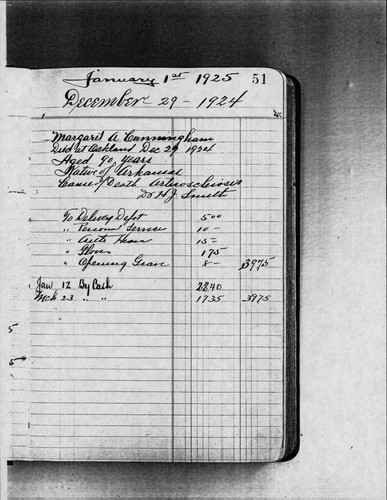 January 1st 1925 51
December 29 - 1924
Margaret A Cunningham
Died at Oakland Dec 29 1924
Aged 90 years
Native of Arkansas
Cause of Death Arteriosclerosis
Dr H J Smith
To Delivery Depot 500
" Personal Service 10 -
" Auto Hearse 15 -
" Gloves 175
" Opening Grave 8 - 3975
Jan 12 By Cash 2240
Mch 23 " " 1735 3975
5
5